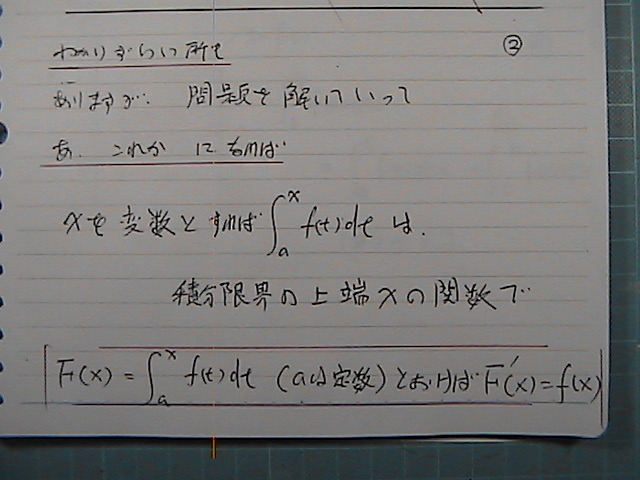 ②
わかりずらい所も
ありますが、問題を解いていって
あ、これか になれば
xを変数とすれば∫ₐˣ f(t)dt は、
積分限界の上端xの関数で
F(x)=∫ₐˣ f(t)dt (aは定数)とおけばF'(x)=f(x)